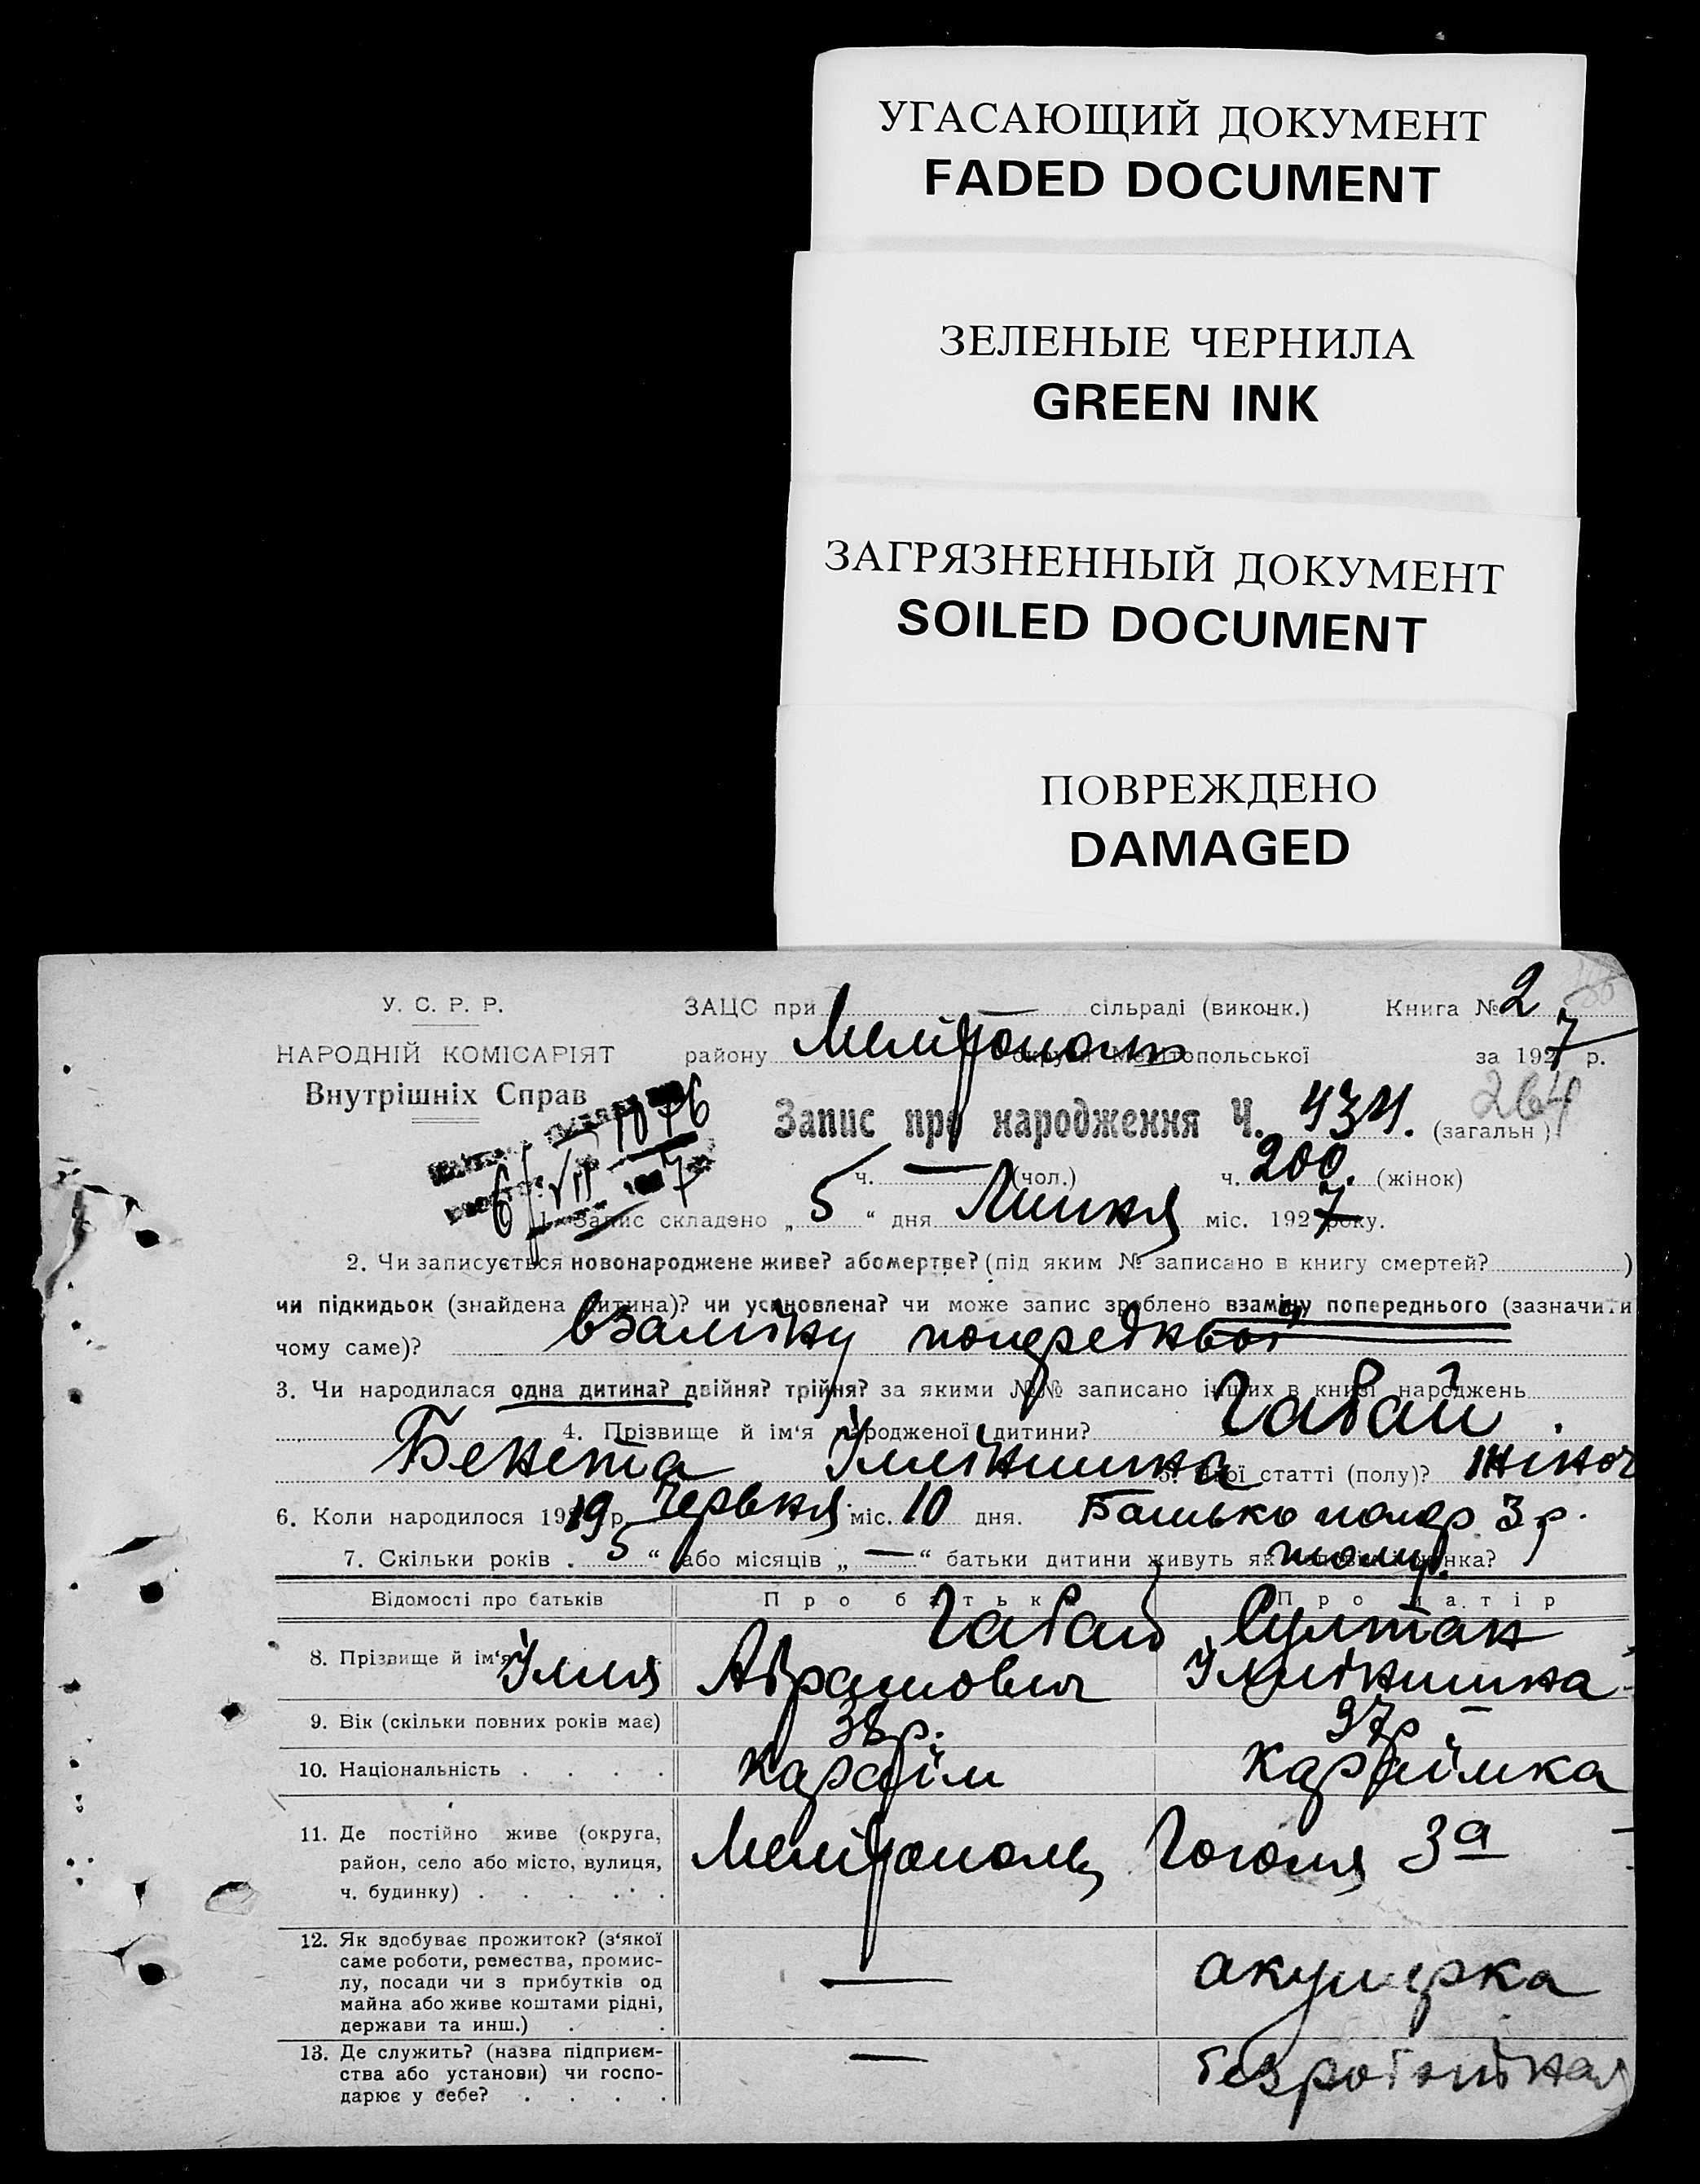 УГАСАЮЩИЙ ДОКУМЕНТ
FADED DOCUMENT
ЗЕЛЕНЫЕ ЧЕРНИЛА
GREEN INK
ЗАГРЯЗНЕННЫЙ ДОКУМЕНТ
SOILED DOCUMENT
ПОВРЕЖДЕНО
DAMAGED
У. С. Р. Р. ЗАЦС при сільраді (виконк.) Книга № 2
НАРОДНІЙ КОМІСАРІЯТ району Мелітополь округи Мелітопольської за 1927 р.
Внутрішніх Справ
1076
6/VII 7
Запис про народження Ч. 434. (загальн.) 264
ч. — (чол.) ч. 200. (жінок)
1. Запис складено „ 5 “ дня Липня міс. 1927 року.
2. Чи записується новонароджене живе? або мертве? (під яким № записано в книгу смертей? )
чи підкидьок (знайдена дитина)? чи усиновлена? чи може запис зроблено взаміну попереднього (зазначити
чому саме)? взаміну попередньої
3. Чи народилася одна дитина? двійня? трійня? за якими №№ записано інших в книзі народжень
4. Прізвище й ім‘я народженої дитини? Габай
Бенета Іллінишна 5. Якої статті (полу)? жіноч
6. Коли народилося 1919 р. Червня міс. 10 дня. Батько помер 3 р.
7. Скільки років „ 5 “ або місяців „ — “ батьки дитини живуть як чоловік і жінка? тому.
Відомості про батьків Про батька Про матір
Габай Султан
8. Прізвище й ім‘я Ілля Абрамович Іллінишна
9. Вік (скільки повних років має) 38 р. 37 р.
10. Національність . . . . караїм караїмка
11. Де постійно живе (округа,
район, село або місто, вулиця,
ч. будинку) . . . . . Мелітополь Гоголя 3а
12. Як здобуває прожиток? (з‘якої
саме роботи, ремества, промис-
лу, посади чи з прибутків од
майна або живе коштами рідні,
держави та инш.) . . — акушерка
13. Де служить? (назва підприєм-
ства або установи) чи госпо-
дарює у себе? . . . . —